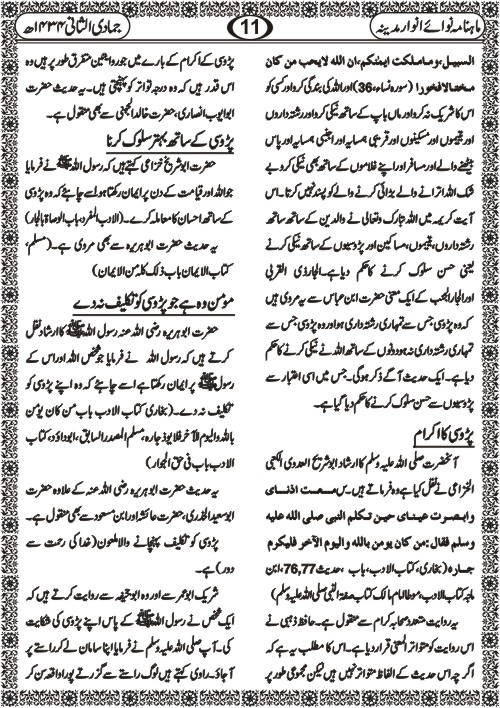 ماہنامہ نوائے انوار مدینہ
11
جمادی الثانی ۱۴۳۴ھ
السبیل،وماملکت ایمٰنکم،ان اللہ لایحب من کان
مختالافخورا(سورہ نساء،36)اور اللہ کی بندگی کرو اور کسی کو
اس کا شریک نہ کرو اور ماں باپ کے ساتھ نیکی کرو اور رشتہ داروں
اور یتیموں اور مسکینوں اور قریبی ہمسایہ اور اجنبی ہمسایہ اور پاس
بیٹھنے والے اور مسافر اور اپنے غلاموں کے ساتھ بھی نیکی کرو بے
شک اللہ اترانے والے بڑائی کرنے والے کو پسند نہیں کرتا۔اس
آیت کریمہ میں اللہ تبارک وتعالیٰ نے والدین کے ساتھ ساتھ
رشتہ داروں،یتیموں،مساکین اور پڑوسیوں کے ساتھ نیکی کرنے
یعنی حسن سلوک کرنے کا حکم دیا ہے۔الجارذی القربیٰ
اور الجارالجنب کے ایک معنی حضرت ابن عباس سے یہ مروی ہیں
کہ وہ پڑوسی جس سے تمہاری رشتہ داری ہو اور وہ پڑوسی جس سے
تمہاری رشتہ داری نہ ہو دونوں کے ساتھ اللہ نے نیکی کرنے کا حکم
دیا ہے۔ایک حدیث آگے ذکر ہوگی۔جس میں اسی اعتبار سے
پڑوسیوں سے حسن سلوک کرنے کا حکم دیا گیا ہے۔
پڑوسی کا اکرام
آنحضرت صلی اللہ علیہ وسلم کا ارشاد ابوشریح العدوی الکعبی
الخزاعی نے نقل کیا ہے وہ فرماتے ہیں۔س سمعت اذنای
وابصرت عینای حین تکلم النبی صلی اللہ علیہ
وسلم فقال:من کان یومن باللہ والیوم الآخر فلیکرم
جارہ(بخاری،کتاب الادب،باب ،حدیث76,77،ابن
ماجہ کتاب الادب،موطاامام مالک کتاب صفۃ النبی صلی اللہ علیہ وسلم)
یہ روایت متعدد صحابہ کرام سے منقول ہے۔حافظ ذہبی نے
اس روایت کو متواتر المعنی قرار دیا ہے۔اس کا مطلب یہ ہے کہ
اگرچہ اس حدیث کے الفاظ متواتر نہیں ہیں لیکن مجموعی طور پر
پڑوسی کے اکرام کے بارے میں جو روایتیں متفرق طور پر ہیں وہ
اس قدر ہیں کہ وہ درجہ تواتر کو پہنچتی ہیں۔یہ حدیث حضرت
ابوایوب انصاری،حضرت خالد الجہنی سے بھی منقول ہے۔
پڑوسی کے ساتھ بہتر سلوک کرنا
حضرت ابوشریح خزاعی کہتے ہیں کہ رسول اللہ ﷺ نے فرمایا
جو اللہ اور قیامت کے دن پر ایمان رکھتا ہو اسے چاہئے کہ وہ پڑوسی
کے ساتھ احسان کا معاملہ کرے۔(الادب المفرد،باب الوصاۃ بالجار)
یہ حدیث حضرت ابوہریرہ سے بھی مروی ہے۔(مسلم،
کتاب الایمان باب ذلک کلہ من الایمان)
مومن وہ ہے جو پڑوسی کو تکلیف نہ دے
حضرت ابوہریرہ رضی اللہ عنہ رسول اللہ ﷺ کا ارشاد نقل
کرتے ہیں کہ رسول اللہ نے فرمایا جو شخص اللہ اور اس کے
رسول ﷺ پر ایمان رکھتا ہے اسے چاہئے کہ وہ اپنے پڑوسی کو
تکلیف نہ دے۔(بخاری کتاب الادب باب من کان یؤمن
باللہ والیوم الآخر فلا یوذ جارہ،مسلم المصدر السابق،ابوداؤد،کتاب
الادب باب فی حق الجوار)
یہ حدیث حضرت ابوہریرہ رضی اللہ عنہ کے علاوہ حضرت
ابوسعیدالخدری،حضرت عائشہ اور ابن مسعود سے بھی منقول ہے۔
پڑوسی کو تکلیف پہنچانے والا ملعون(خدا کی رحمت سے
دور)ہے۔
شریک ابوعمر سے اور وہ ابوجحیفہ سے روایت کرتے ہیں کہ
ایک شخص نے رسول اللہ ﷺ کے پاس اپنے پڑوسی کی شکایت
کی۔آپ صلی اللہ علیہ وسلم نے فرمایا اپنا سامان لے کر راستے پر
آجاؤ۔راوی کہتے ہیں لوگ راستے سے گزرتے پورا واقعہ سن کر